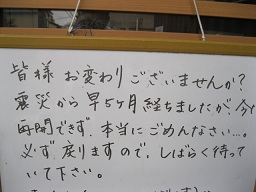 皆様 お変わりございませんか?
震災から早5ヶ月経ちましたが、今だ
再開できず、本当にごめんなさい…。
必ず戻りますので、しばらく待って
いて下さい。